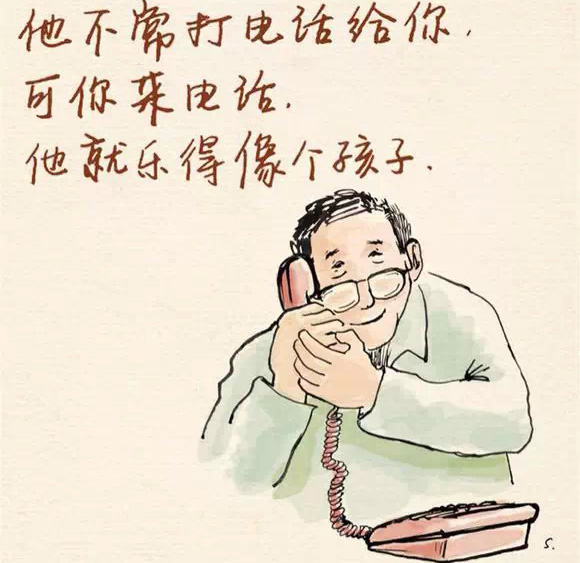 他不常打电话给你,
可你来电话,
他就乐得像个孩子.
S.